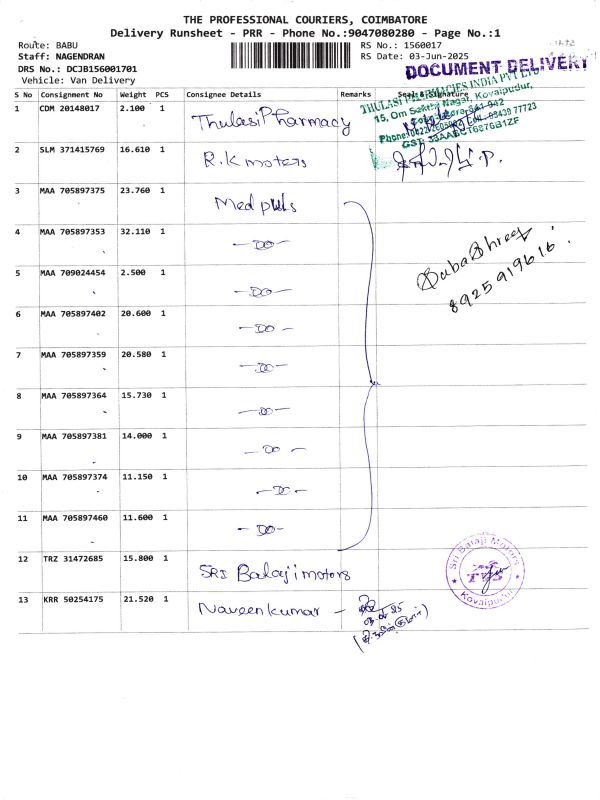 THE PROFESSIONAL COURIERS, COIMBATORE
Delivery Runsheet - PRR - Phone No.:9047080280 - Page No.:1
Route: BABU
Staff: NAGENDRAN
DRS No.: DCJB156001701
Vehicle: Van Delivery
RS No.: 1560017
RS Date: 03-Jun-2025
DOCUMENT DELIVERY
S No Consignment No Weight PCS Consignee Details Remarks Seal & Signature
1 CDM 20148017 2.100 1 Thulasi Pharmacy
THULASI PHARMACIES INDIA PVT LTD
15, Om Sakthi Nagar, Kovaipudur,
GST:
2 SLM 371415769 16.610 1 R.K motors
3 MAA 705897375 23.760 1 Med plus
4 MAA 705897353 32.110 1 -DO-
BabaShree
8925919616
5 MAA 709024454 2.500 1 -DO-
6 MAA 705897402 20.600 1 -DO-
7 MAA 705897359 20.580 1 -DO-
8 MAA 705897364 15.730 1 -DO-
9 MAA 705897381 14.000 1 -DO-
10 MAA 705897374 11.150 1 -DO-
11 MAA 705897460 11.600 1 -DO-
12 TRZ 31472685 15.800 1 SRI Balaji motors
Sri Balaji Motors
TVS
Kovaipudur
13 KRR 50254175 21.520 1 Naveen kumar -